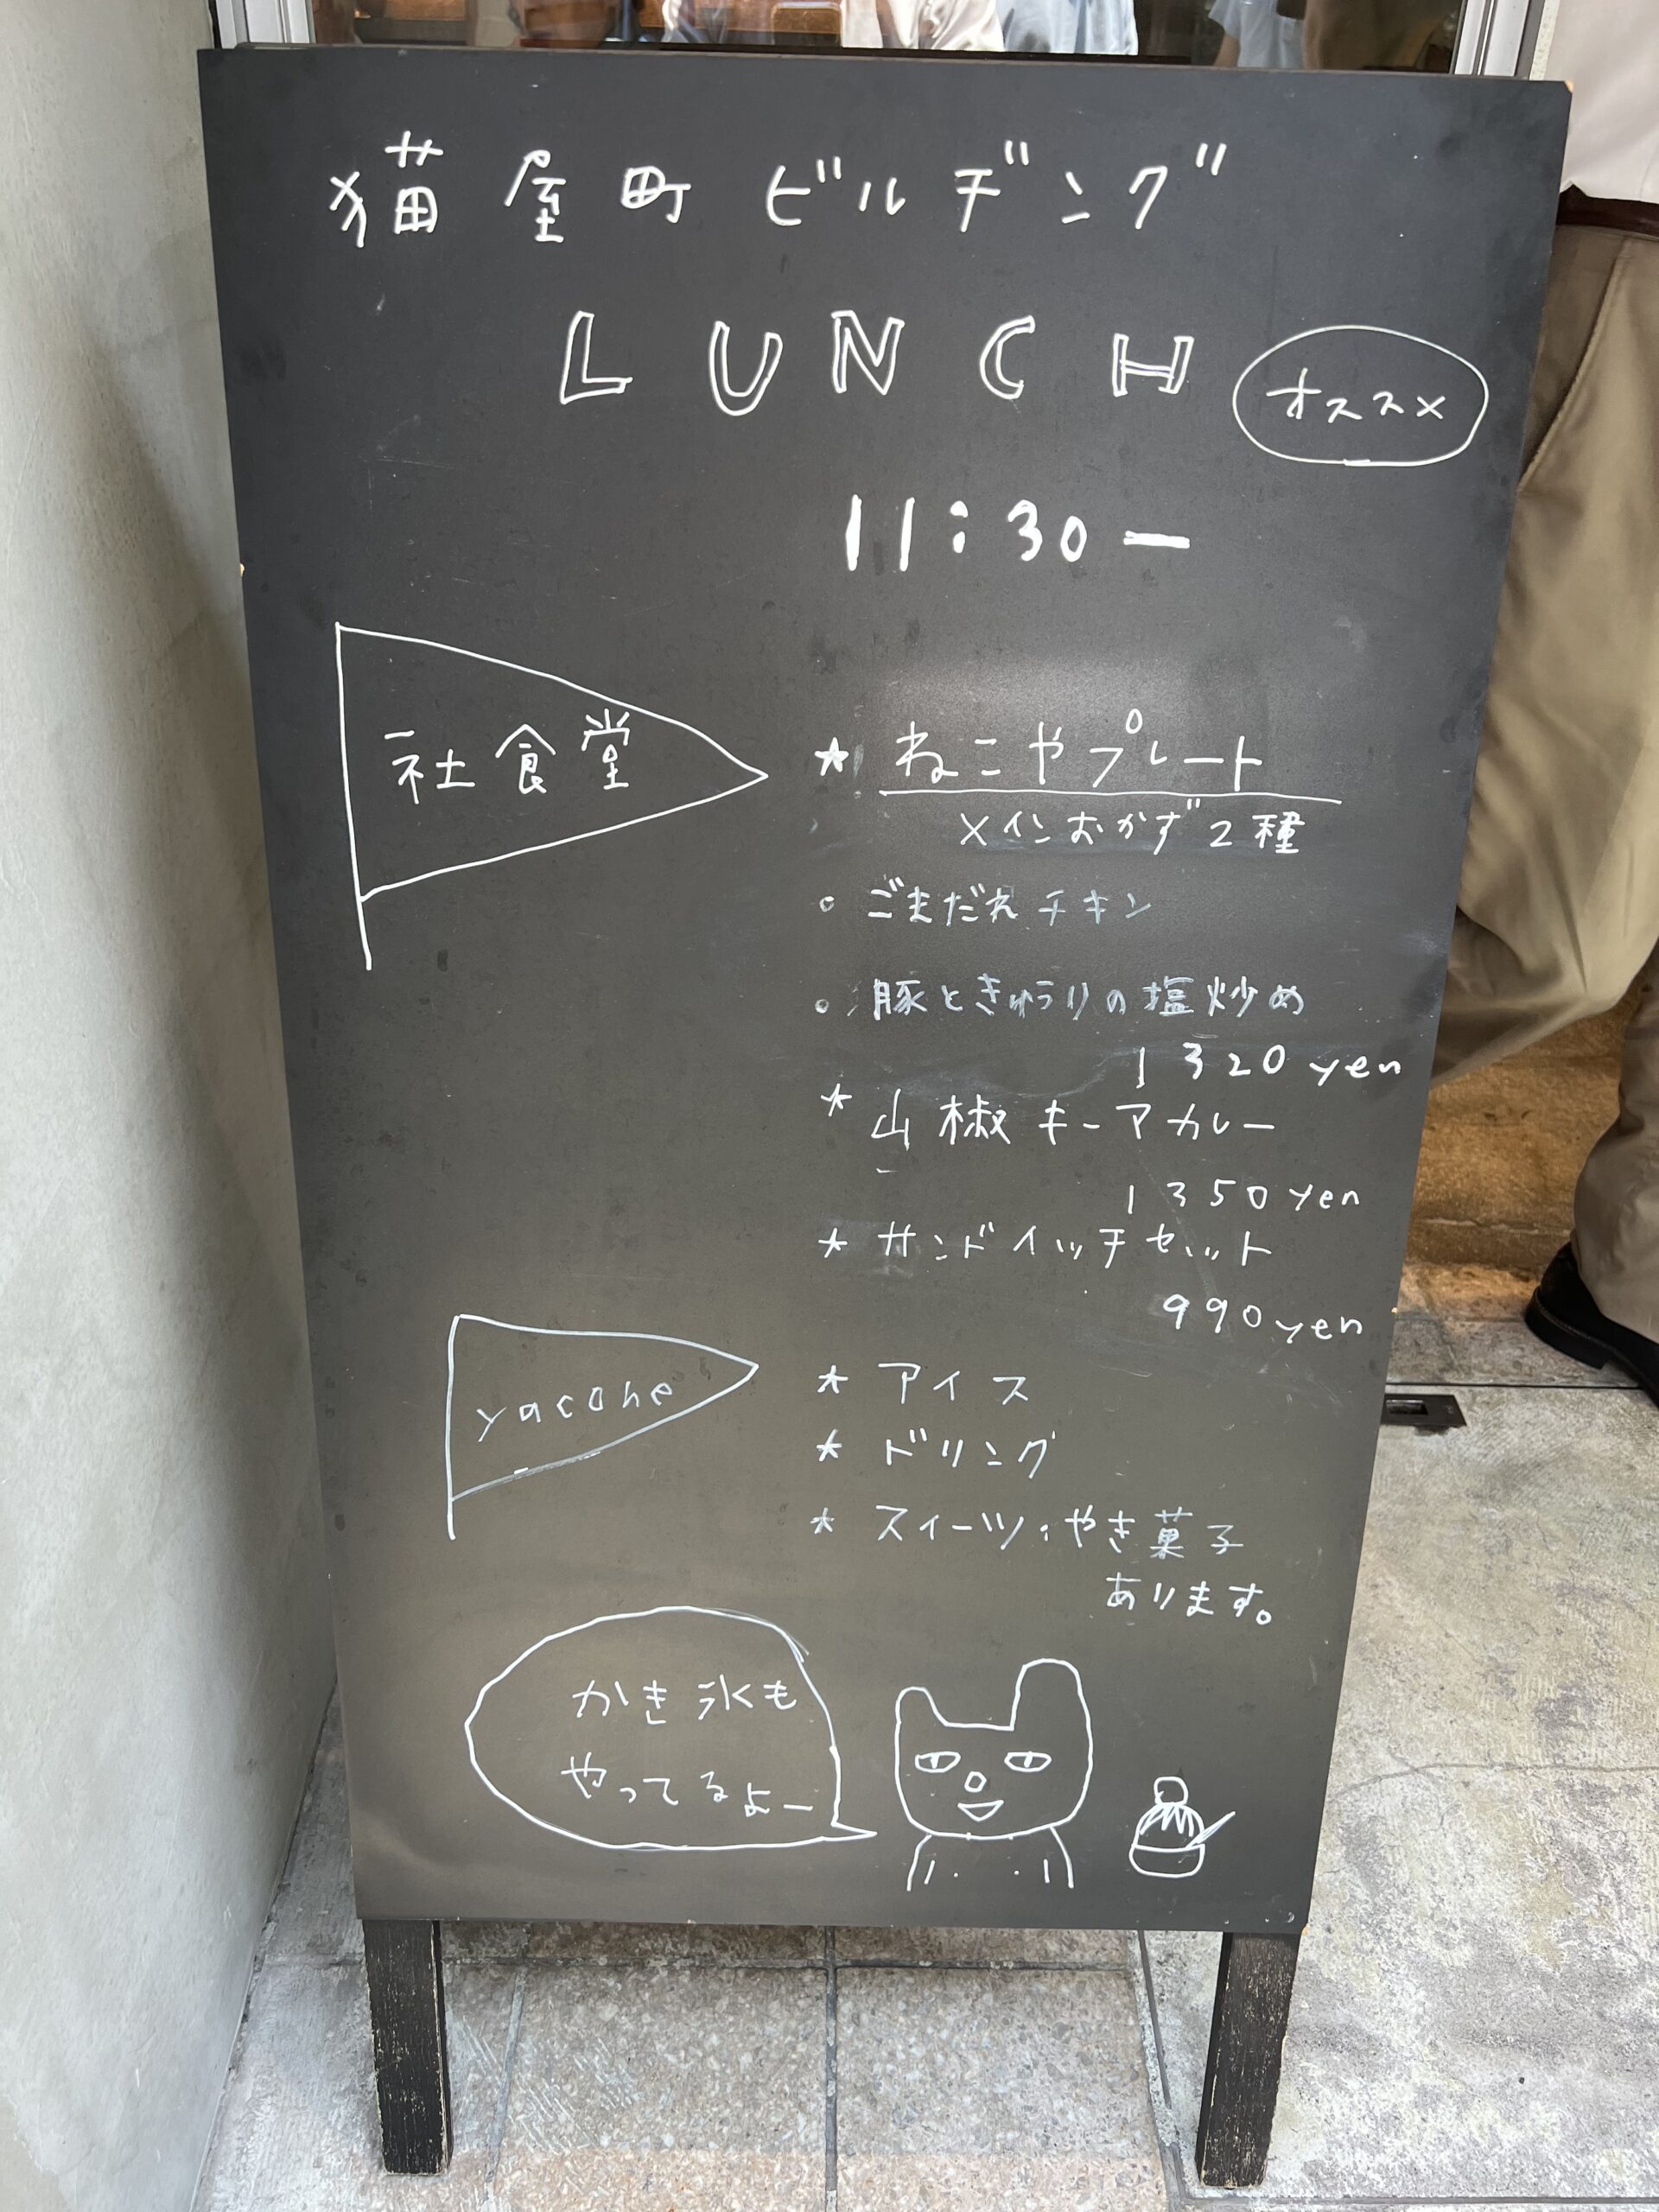 猫屋町ビルヂング
LUNCH
オススメ
11:30ー
社食堂
★ ねこやプレート
メインおかず2種
○ ごまだれチキン
○ 豚ときゅうりの塩炒め
1320yen
★ 山椒キーアカレー
1350yen
★ サンドイッチセット
990yen
yacone
★ アイス
★ ドリング
★ スイーツ・やき菓子
あります。
かき氷も
やってるよー